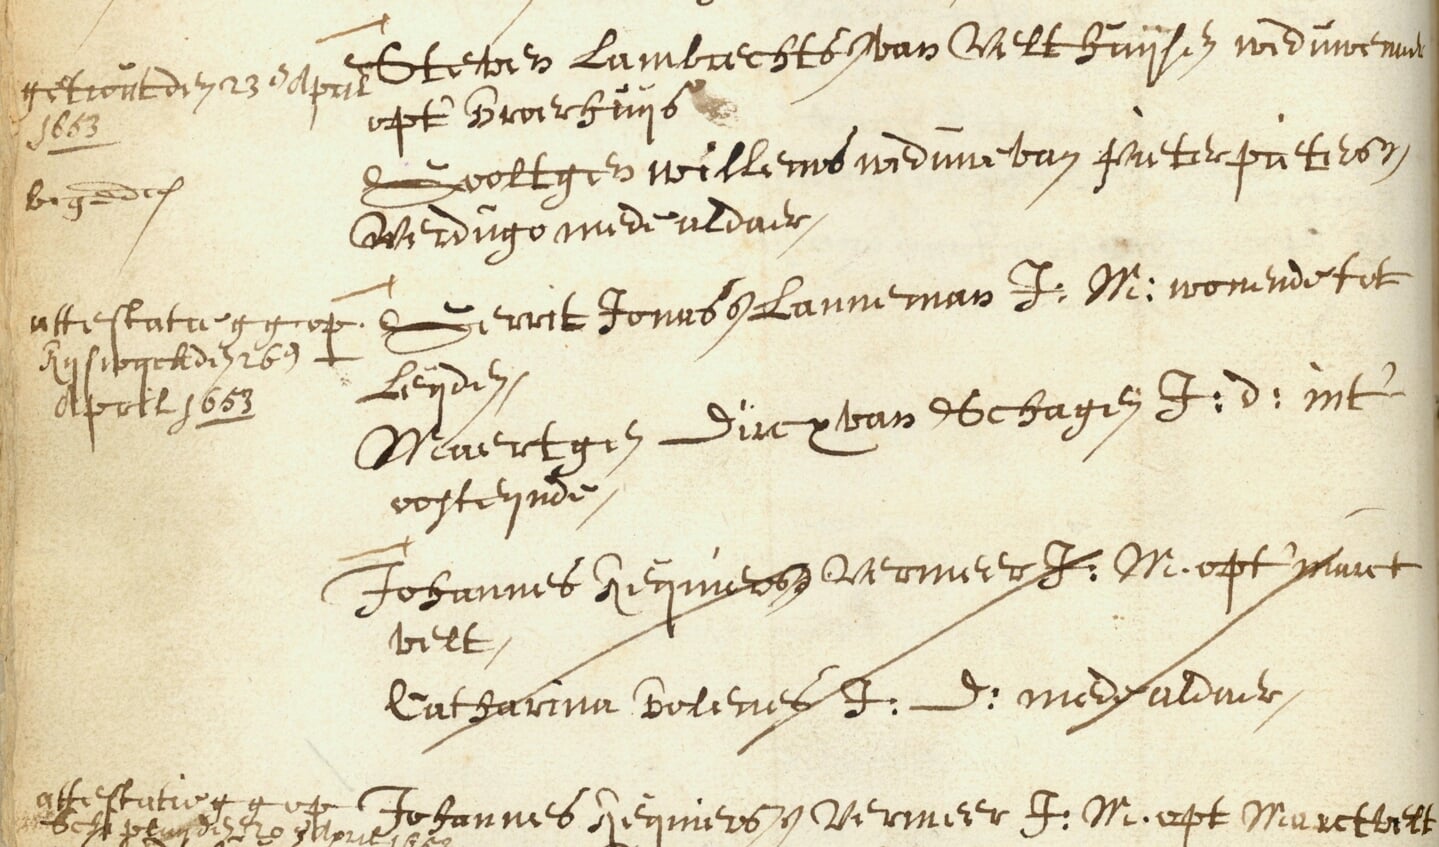 getrout den 23en April
1653
begeden
Steven Lambrechtsz van Velthuijsen weduwenaer
opt Broerhuijs
Gooltgen willems weduwe van Pieter pietersz
Verdugo mede aldaer
attestatie gegeven op
Rijswijck den 26en
April 1653
Gerrit Jonasz Lanneman J: M: wonende tot
Leyden
Maertgen Dircx van Schagen J: d: int
oosteynde
Johannes Reyniersz Vermeer J: M. opt marct
velt
Catharina Bolenes J: D: mede aldaer
attestatie gegeven op
Schipluyden 20 April 1653
Johannes Reyniersz Vermeer J: M. opt Marctvelt